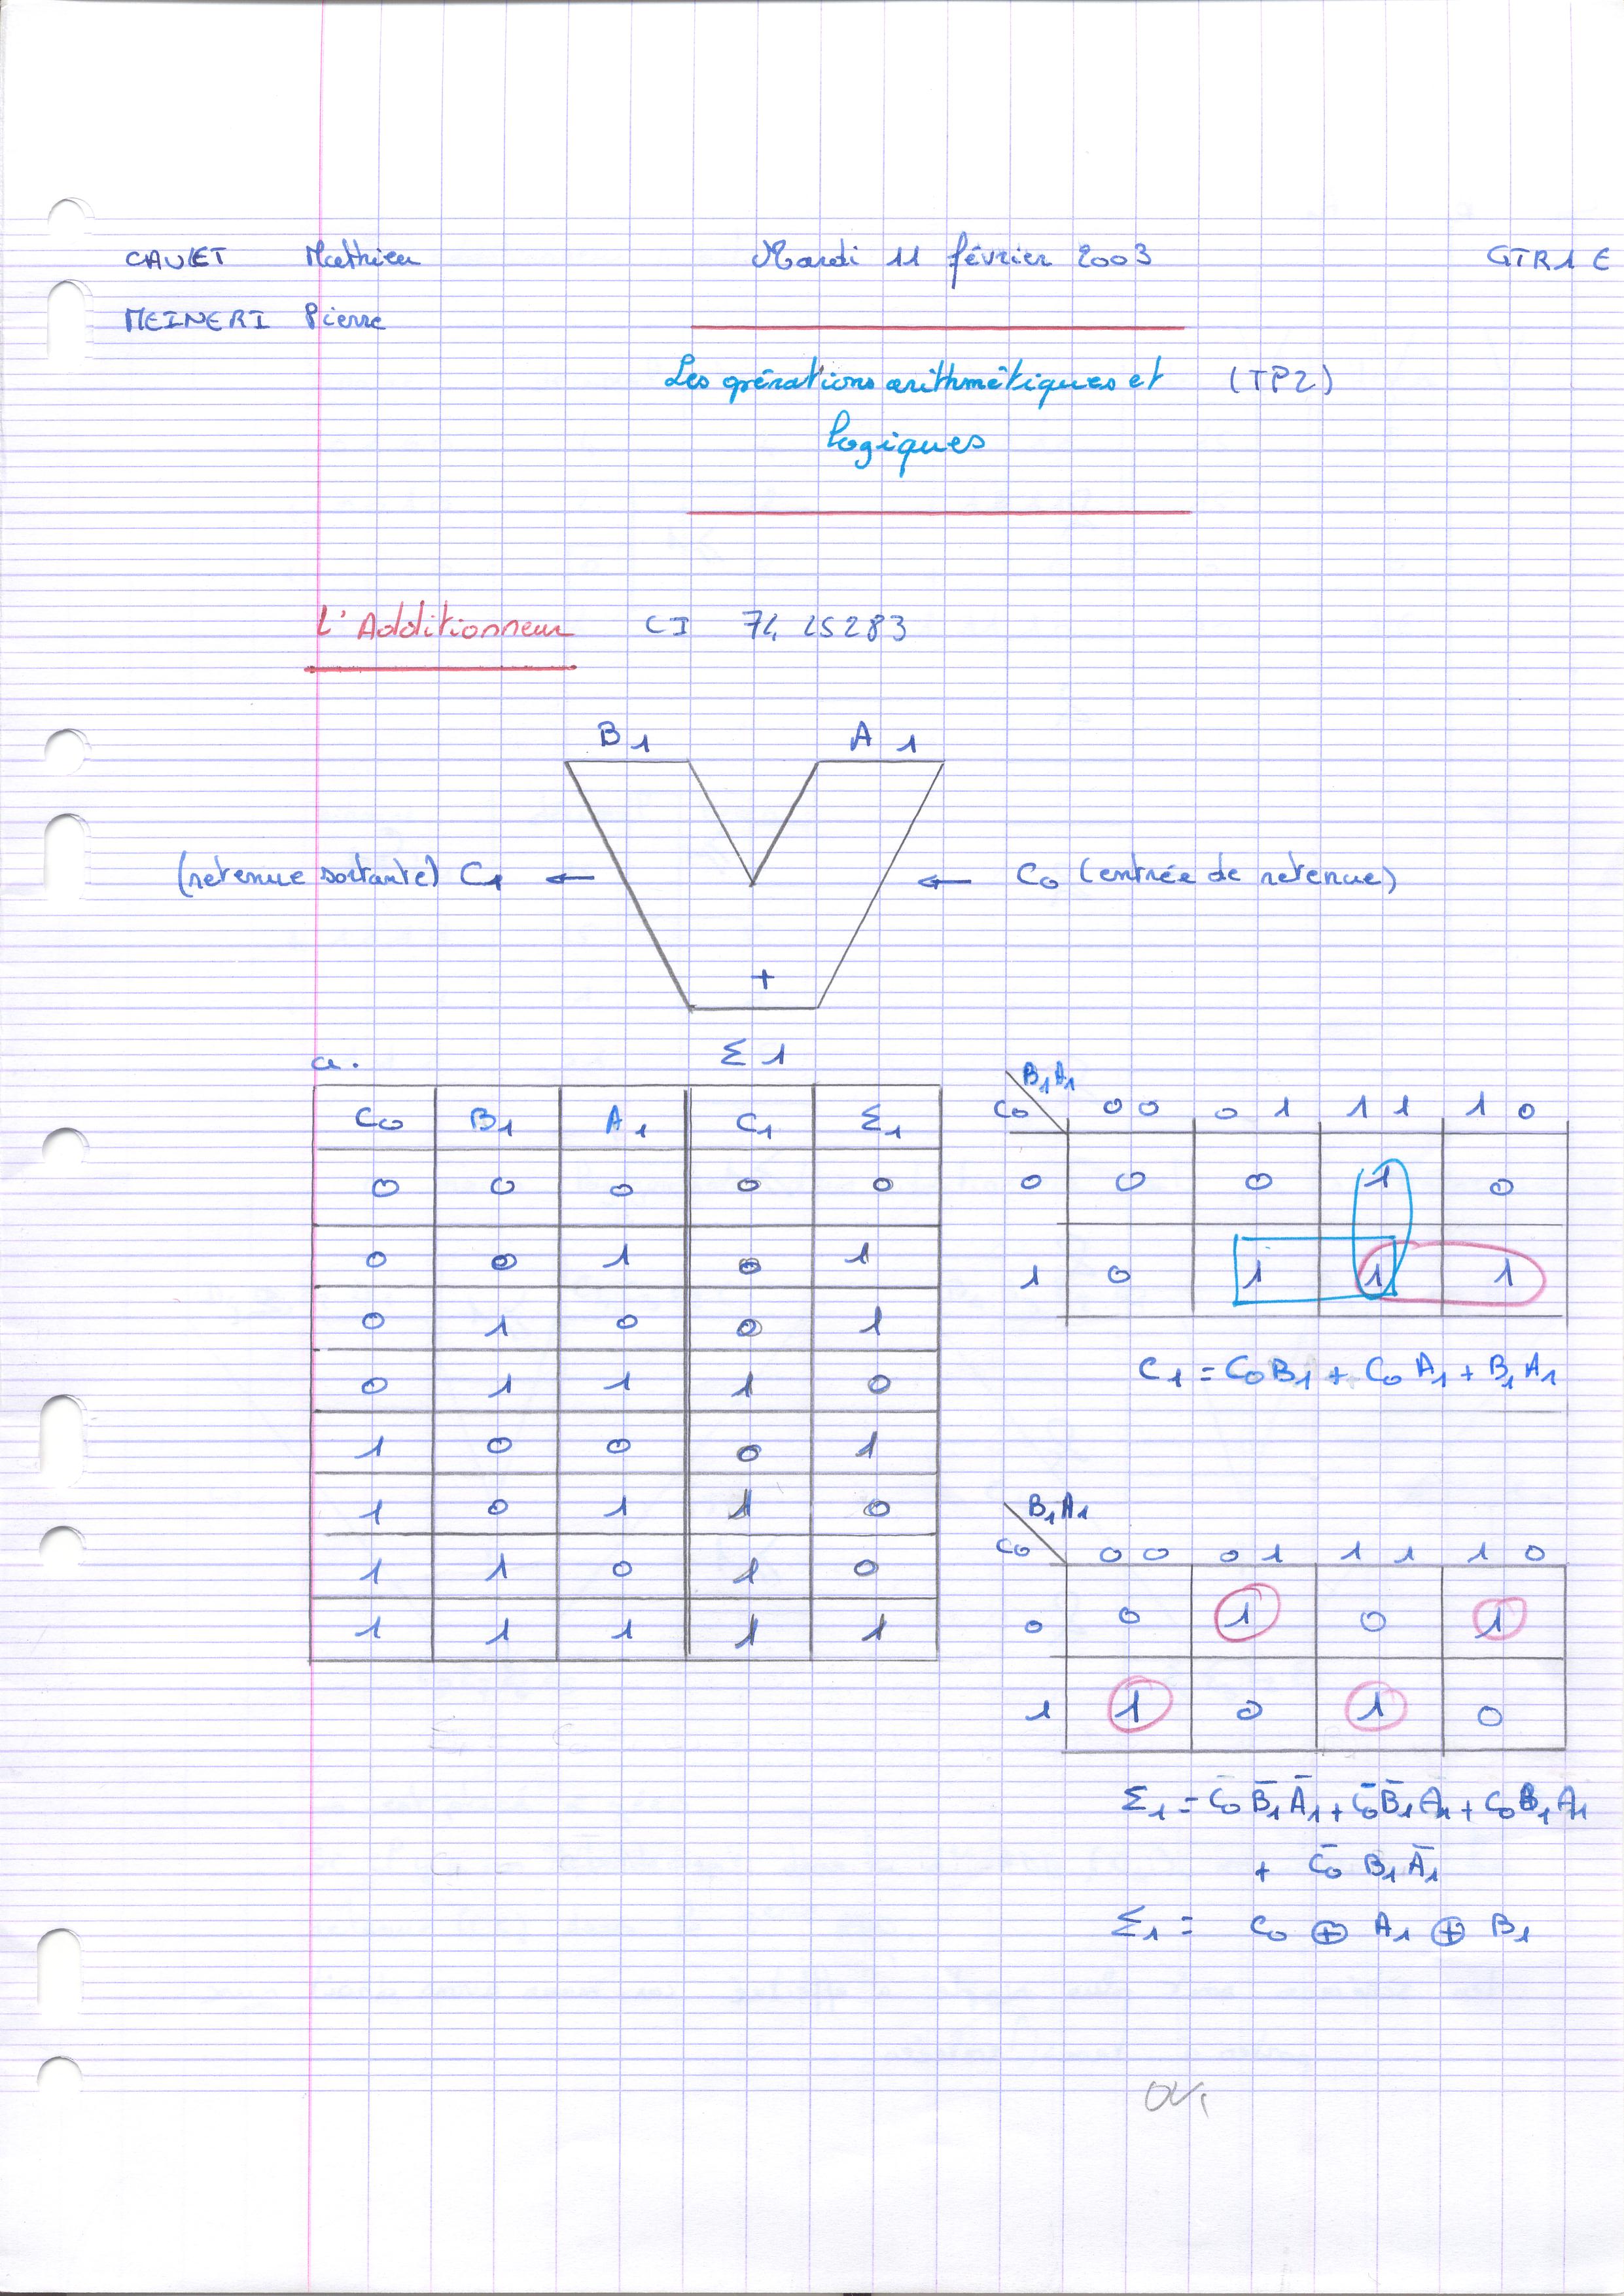 CAUET Mathieu Mardi 11 février 2003 GTR1 E
MEINERI Pierre
Les opérations arithmétiques et (TP2)
logiques
L'Additionneur CI 74 LS283
B1 A1
(retenue sortante) C1 ← ← C0 (entrée de retenue)
+
Σ1
a.
C0 B1 A1 C1 Σ1
0 0 0 0 0
0 0 1 0 1
0 1 0 0 1
0 1 1 1 0
1 0 0 0 1
1 0 1 1 0
1 1 0 1 0
1 1 1 1 1
B1A1
C0 00 01 11 10
0 0 0 1 0
1 0 1 1 1
C1 = C0B1 + C0A1 + B1A1
B1A1
C0 00 01 11 10
0 0 1 0 1
1 1 0 1 0
Σ1 = C0 B̄1 Ā1 + C̄0 B̄1 A1 + C0 B1 A1
+ C̄0 B1 Ā1
Σ1 = C0 ⊕ A1 ⊕ B1